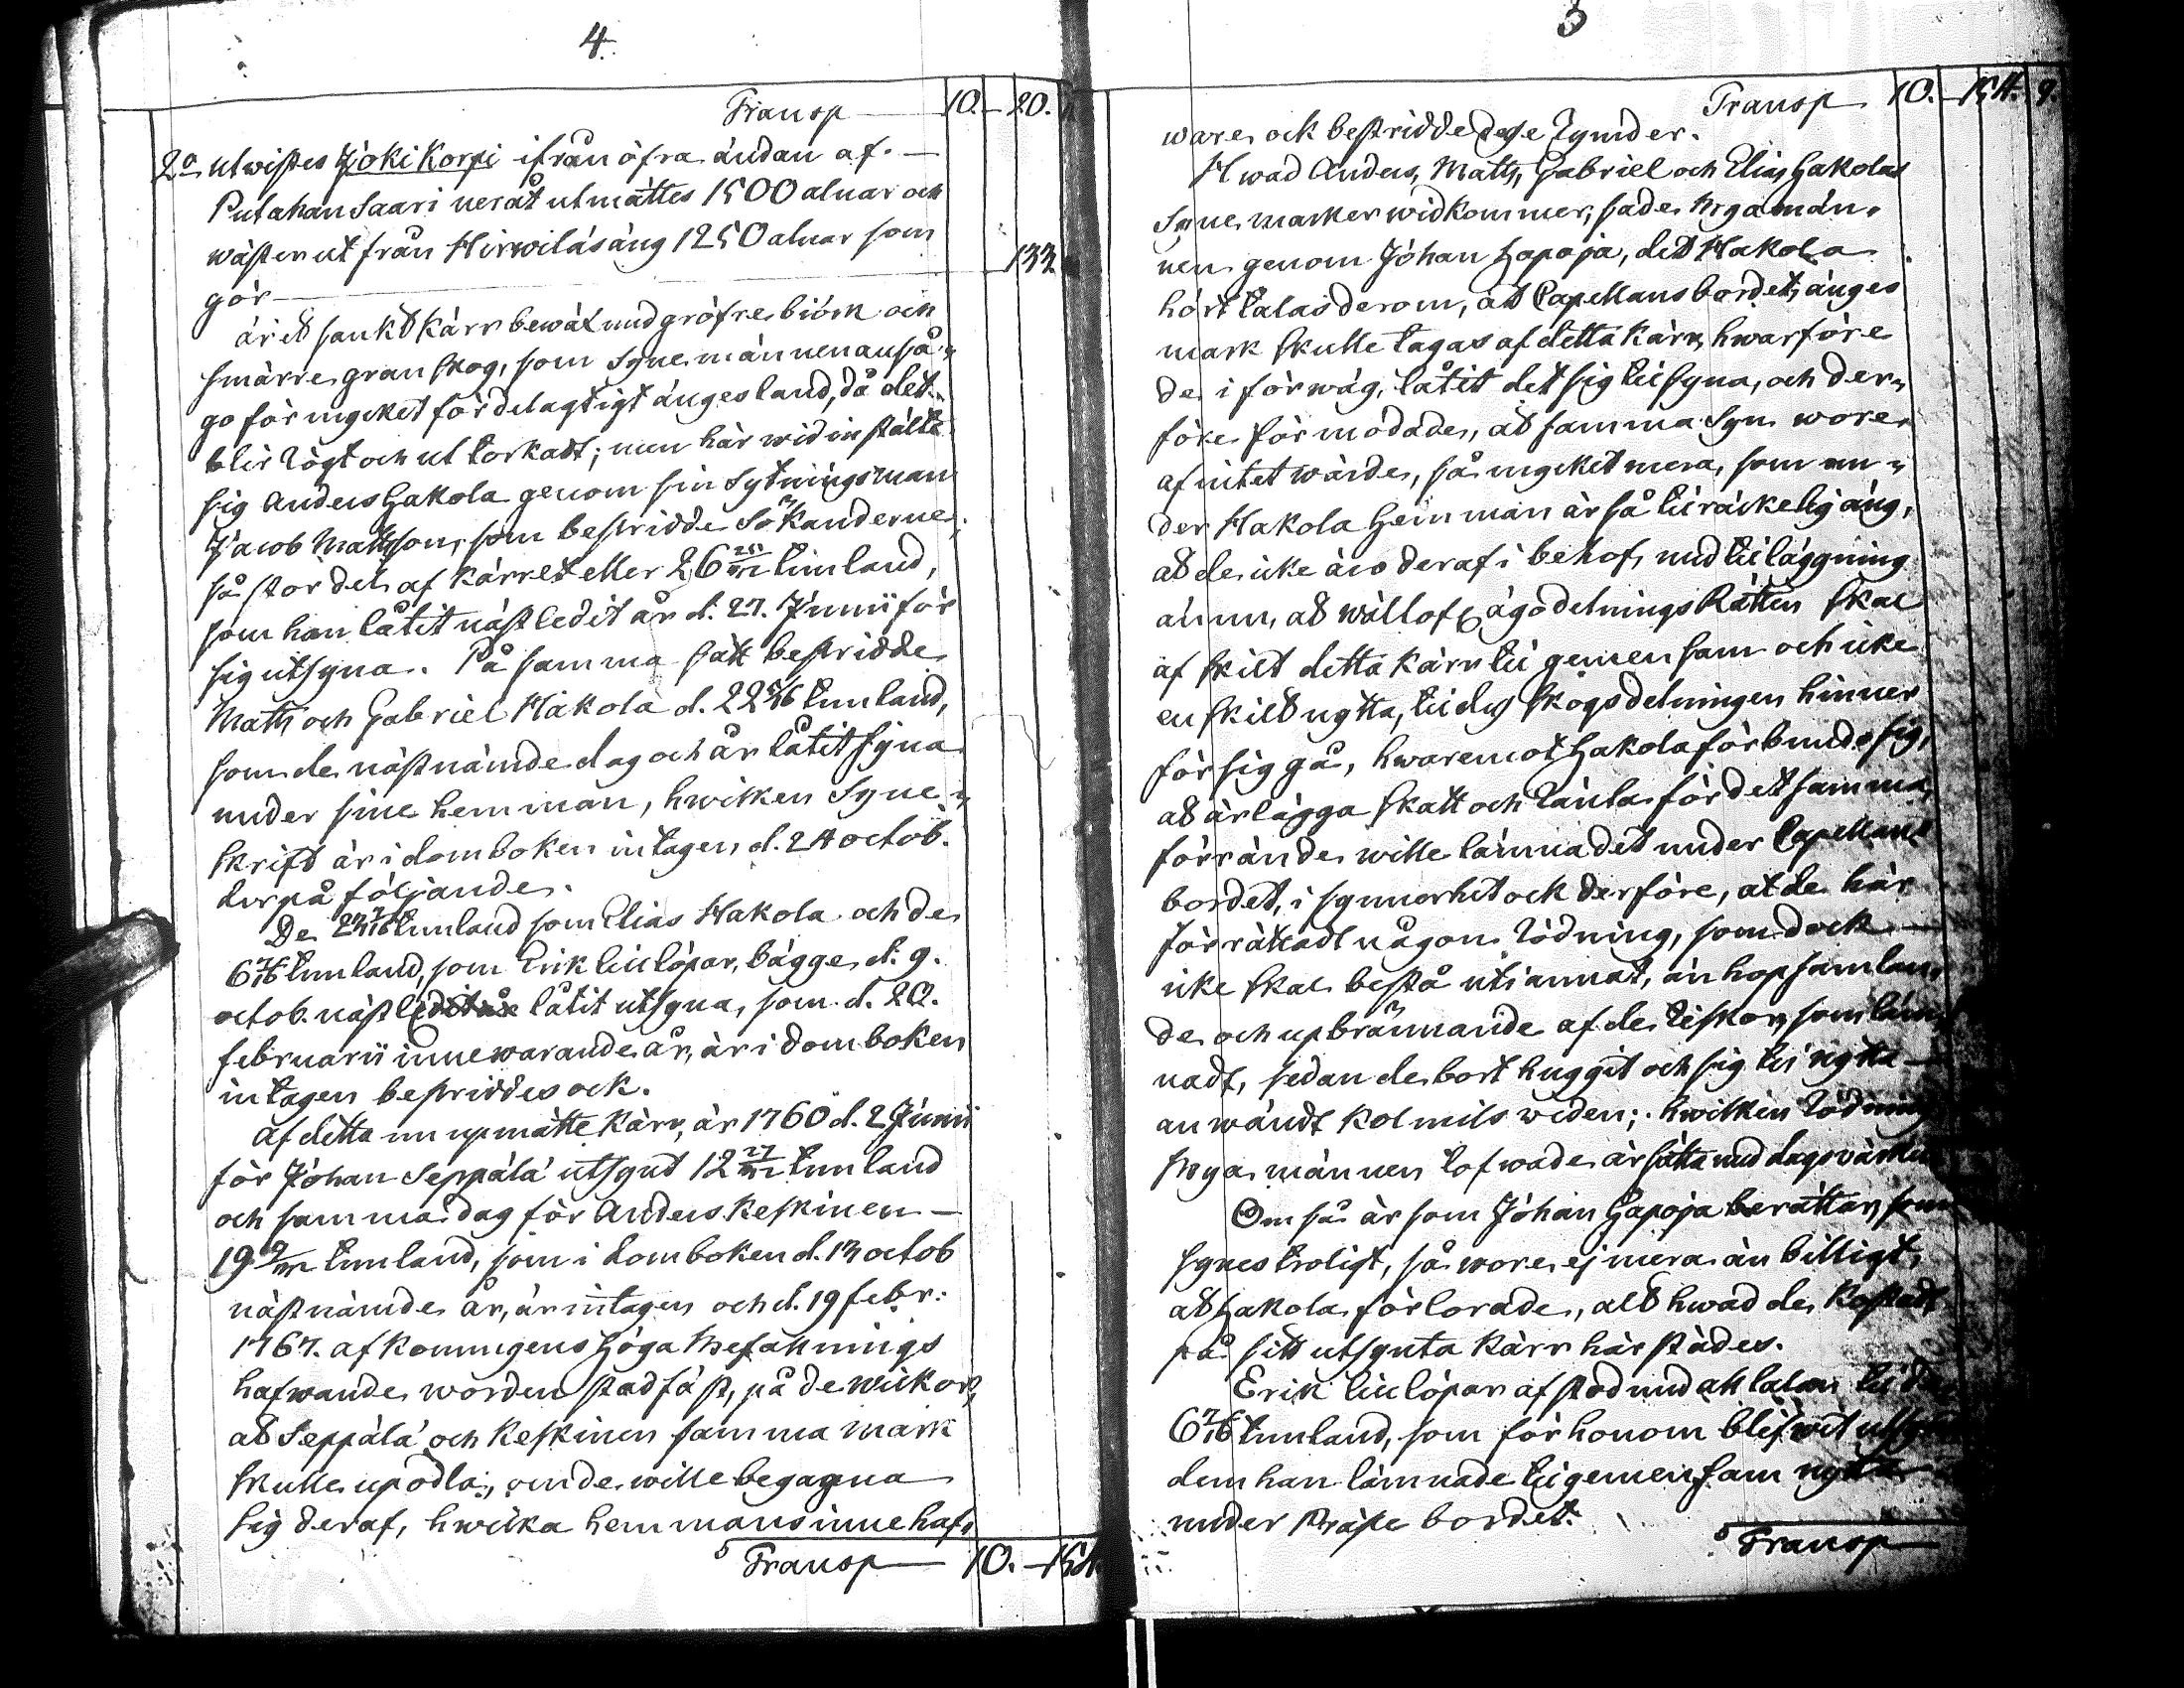 4.
Transp — 10. — 20.
2o utwistes Joki Korpi ifrån öfra ändan af
Putahan Saari neråt utmättes 1500 alnar och
wäster ut från Hirwiläs äng 1250 alnar som
gör — 133
är et sankt Kärr bewäxt med gröfre biörk och
smärre granskog, som Synemännen anså-
go för mycket fördelagtigt ängesland, då det
blir rögt och uttorkadt; men här wid instälte
sig Anders Hakola genom sin Sytningsman
Jacob Mattsson, som bestridde Sökanderne
så stor del af Kärret eller 26 25/32 tunland,
som han låtit nästledit år d. 27. Junii för
sig utsyna. På samma sätt bestridde
Matts och Gabriel Hakola d. 22 5/16 tunland,
som de nästnämde dag och år låtit syna
under sine hemman, hwilken Syne-
skrift är i domboken intagen d. 24 octob.
derpå följande.
De 23 7/16 tunland som Elias Hakola och de
6 7/16 tunland, som Erik Lillöpar, bägge d. 9.
octob. näst ledit år låtit utsyna, som d. 20.
februarii innewarande år, är i domboken
intagen bestriddes ock.
Af detta nu upmätte Kärr, är 1760 d. 2 Junii
för Johan Seppälä utsynt 12 27/32 tunland
och samma dag för Anders Keskinen —
19 9/32 tunland, som i domboken d. 13 octob
nästnämde år, är intagen och d. 19 febr:
1767. af Konungens Höga Befallnings
hafwande worden stadfäst, på de wilkor,
at Seppälä och Keskinen samma mark
skulle upodla, om de wille begagna
sig deraf, hwilka hemmans innehaf-
Transp — 10. — 154.
5
Transp 10. — 154. 9.
ware ock bestridde desse Tymder.
Hwad Anders, Matts, Gabriel och Elias Hakolas
Syne marker widkommer, sade Nygamän-
nen genom Johan Hapoja, det Hakola
hört talas derom, at Capellans bordets änges
mark skulle tagas af detta Kärr, hwarföre
de i förwäg låtit det sig tilsyna, och der-
före förmodade, at samma Syn wore
af intet wärde, så mycket mera, som un-
der Hakola Hemman är så tilräckelig äng,
at de icke äro deraf i behof, med tilläggning
ännu, at wällofl. ägodelnings Rätten skal
afskilt detta Kärr til gemensam och icke
enskilt nytta, til des skogsdelningen hinner
för sig gå, hwaremot Hakola förbundo sig,
at ärlägga skatt och Ränta för det samma,
förr än de wille lämna det under Capellans
bordet, i synnerhet ock derföre, at de här
förrättadt någon rödning, som dock —
icke skal bestå uti annat, än hopsamlan-
de och upbrännande af de riskor, som läm-
nadt, sedan de bort huggit och sig til nytta —
anwändt Kolmils weden; hwilken Rödning
Nyamännen lofwade ärsätta med dagswärken.
Om så är som Johan Hapoja berättar, som
synes troligt, så wore ej mera än billigt,
at Hakola förlorade, alt hwad de kostadt
på sitt utsynta Kärr här städes.
Erik Lillöpar afstod med alt talan til de
6 7/16 tunland, som för honom blifwit utsynt
dem han lämnade til gemensam nytta
under Präste bordet.
Transp —